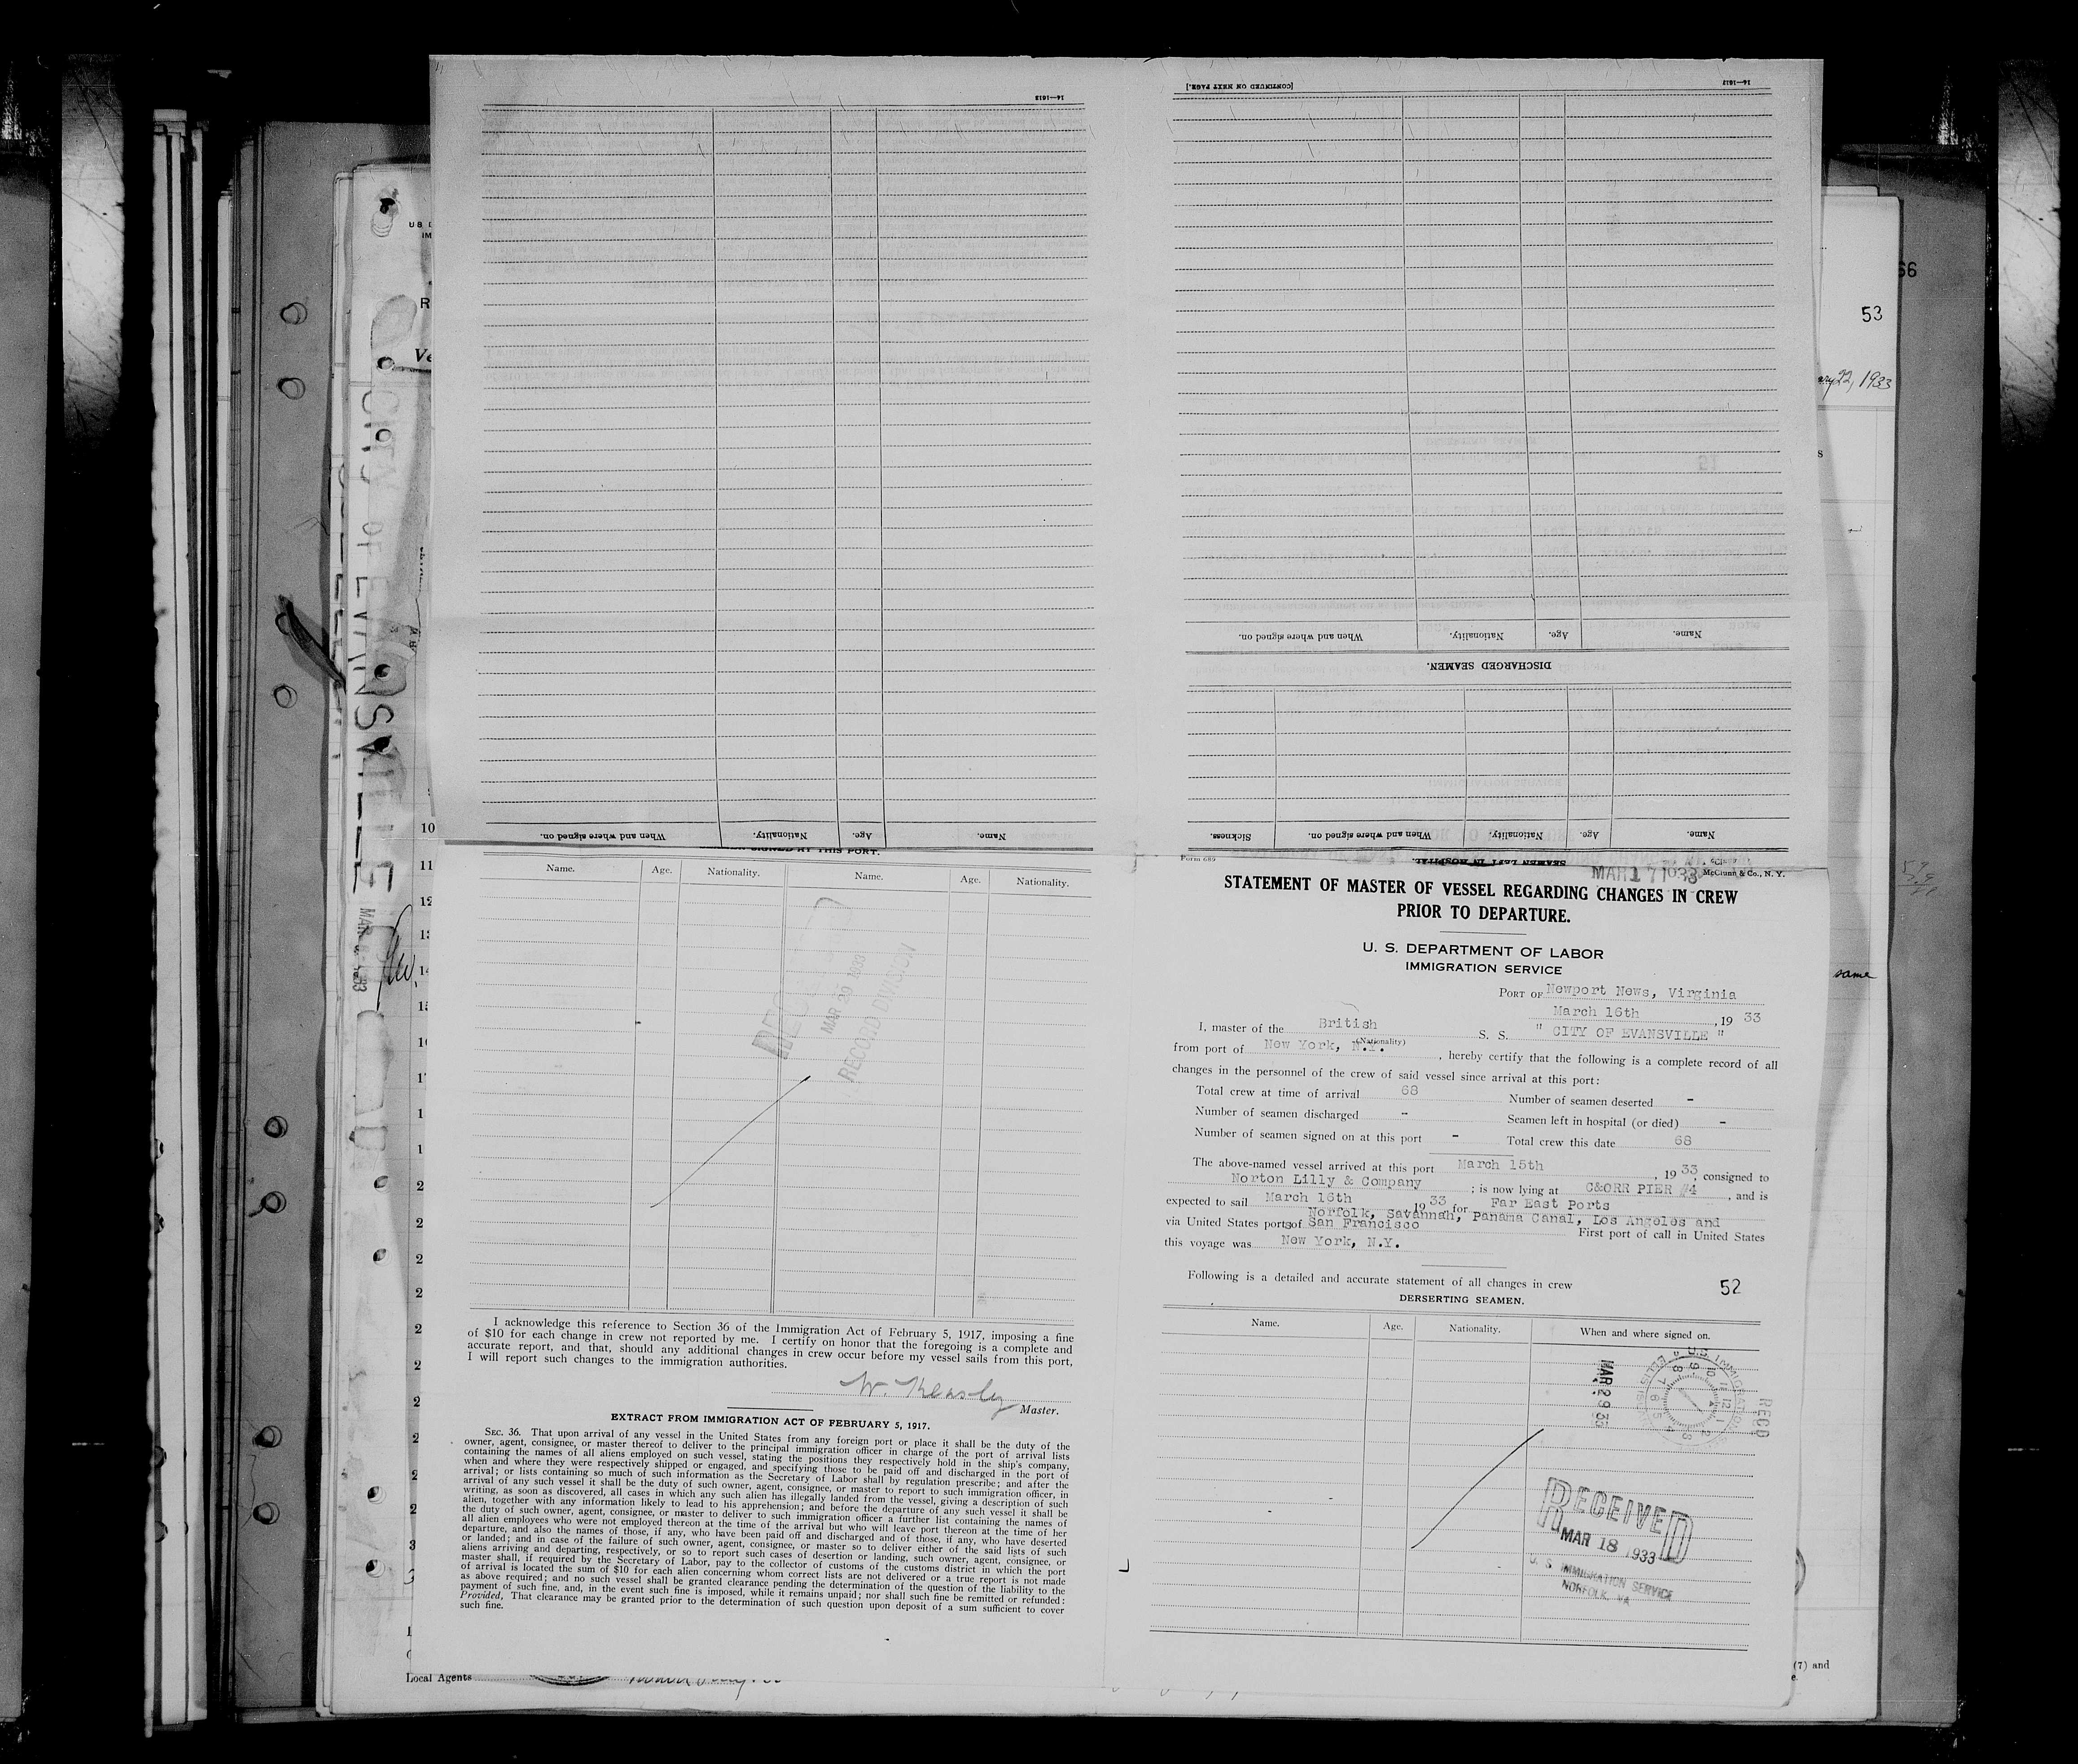 14—1613
[CONTINUED ON NEXT PAGE.]
14—1617
Name. Age. Nationality. When and where signed on.
DISCHARGED SEAMEN.
Name. Age. Nationality. When and where signed on.
Name. Age. Nationality. When and where signed on. Sickness.
SEAMEN LEFT IN HOSPITAL.
SIGNED AT THIS PORT.
Name. Age. Nationality. Name. Age. Nationality.
MAR 29 1933
RECORD DIVISION
I acknowledge this reference to Section 36 of the Immigration Act of February 5, 1917, imposing a fine
of $10 for each change in crew not reported by me. I certify on honor that the foregoing is a complete and
accurate report, and that, should any additional changes in crew occur before my vessel sails from this port,
I will report such changes to the immigration authorities.
Master.
EXTRACT FROM IMMIGRATION ACT OF FEBRUARY 5, 1917.
SEC. 36. That upon arrival of any vessel in the United States from any foreign port or place it shall be the duty of the
owner, agent, consignee, or master thereof to deliver to the principal immigration officer in charge of the port of arrival lists
containing the names of all aliens employed on such vessel, stating the positions they respectively hold in the ship's company,
when and where they were respectively shipped or engaged, and specifying those to be paid off and discharged in the port of
arrival; or lists containing so much of such information as the Secretary of Labor shall by regulation prescribe; and after the
arrival of any such vessel it shall be the duty of such owner, agent, consignee, or master to report to such immigration officer, in
writing, as soon as discovered, all cases in which any such alien has illegally landed from the vessel, giving a description of such
alien, together with any information likely to lead to his apprehension; and before the departure of any such vessel it shall be
the duty of such owner, agent, consignee, or master to deliver to such immigration officer a further list containing the names of
all alien employees who were not employed thereon at the time of the arrival but who will leave port thereon at the time of her
departure, and also the names of those, if any, who have been paid off and discharged and of those, if any, who have deserted
or landed; and in case of the failure of such owner, agent, consignee, or master so to deliver either of the said lists of such
aliens arriving and departing, respectively, or so to report such cases of desertion or landing, such owner, agent, consignee, or
master shall, if required by the Secretary of Labor, pay to the collector of customs of the customs district in which the port
of arrival is located the sum of $10 for each alien concerning whom correct lists are not delivered or a true report is not made
as above required; and no such vessel shall be granted clearance pending the determination of the question of the liability to the
payment of such fine, and, in the event such fine is imposed, while it remains unpaid; nor shall such fine be remitted or refunded:
Provided, That clearance may be granted prior to the determination of such question upon deposit of a sum sufficient to cover
such fine.
Form 689
McClunn & Co., N. Y.
STATEMENT OF MASTER OF VESSEL REGARDING CHANGES IN CREW
PRIOR TO DEPARTURE.
U. S. DEPARTMENT OF LABOR
IMMIGRATION SERVICE
PORT OF Newport News, Virginia
March 16th, 19 33
I, master of the British S. S. " CITY OF EVANSVILLE "
(Nationality)
from port of New York, N.Y., hereby certify that the following is a complete record of all
changes in the personnel of the crew of said vessel since arrival at this port:
Total crew at time of arrival 68 Number of seamen deserted -
Number of seamen discharged - Seamen left in hospital (or died) -
Number of seamen signed on at this port - Total crew this date 68
The above-named vessel arrived at this port March 15th, 19 33 consigned to
Norton Lilly & Company ; is now lying at C&ORR PIER #4, and is
expected to sail March 16th 19 33, for Far East Ports
Norfolk, Savannah, Panama Canal, Los Angeles and
via United States ports of San Francisco First port of call in United States
this voyage was New York, N.Y.
Following is a detailed and accurate statement of all changes in crew
52
DERSERTING SEAMEN.
Name. Age. Nationality. When and where signed on.
MAR 29 33
REC'D
RECEIVED
MAR 18 1933
U. S. IMMIGRATION SERVICE
NORFOLK, VA
CITY OF EVANSVILLE
53
22, 1933
same
66
10
11
12
Local Agents
(7) and